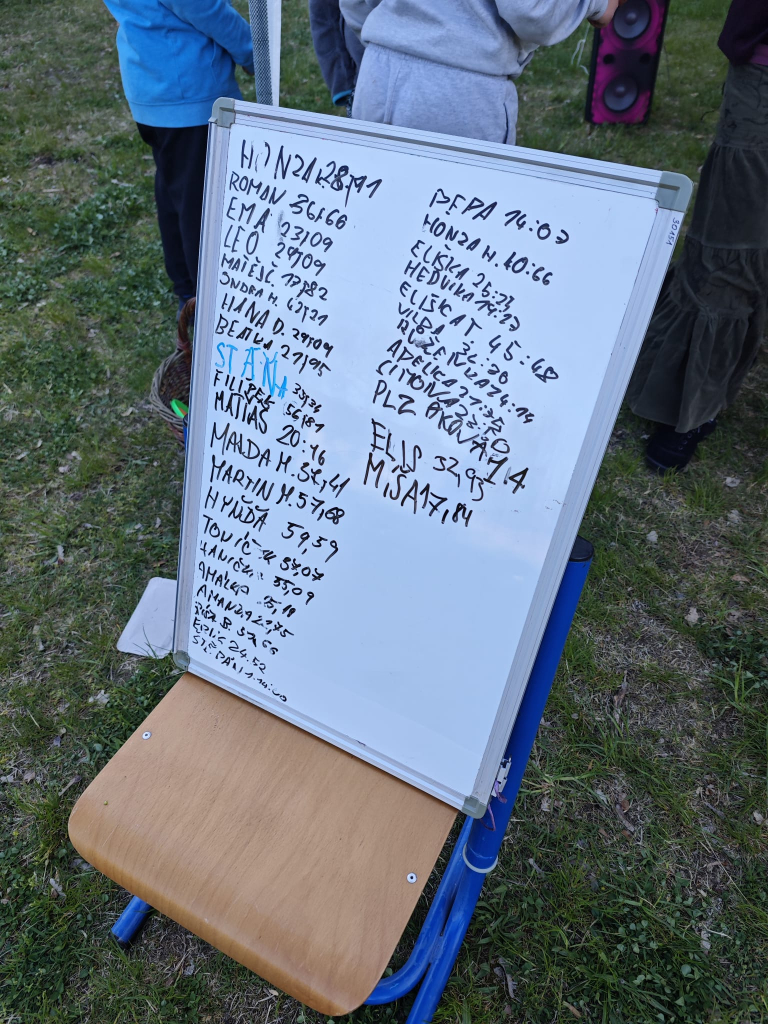 HONZA 28,91
ROMAN 36,66
EMA 23,09
LEO 29,09
MATĚJ Č. 17,82
ONDRA H. 43,21
HANA D. 29,09
BEATKA 21,95
STÁŇA 33,34
FILÍPEK 56,81
MATIAS 20:16
MAJDA H. 32,41
MARTIN H. 57,68
HYNĎA 59,59
TONIČ 57,07
HANIČKA 35,09
AMÁLKA 25,18
AMANDA 22,75
B. 52,66
24.52
1.14:00
PEPA 14:07
HONZA H. 40:66
ELIŠKA 25:23
HEDVIKA 14:17
ELIŠKA T 45:48
VILDA 32:20
RŮŽENKA 24:14
ADÉLKA 27:35
ŠIMON 23:30
PLZÁKOVÁ 14
ELIS 32,95
MÍŠA 17,84